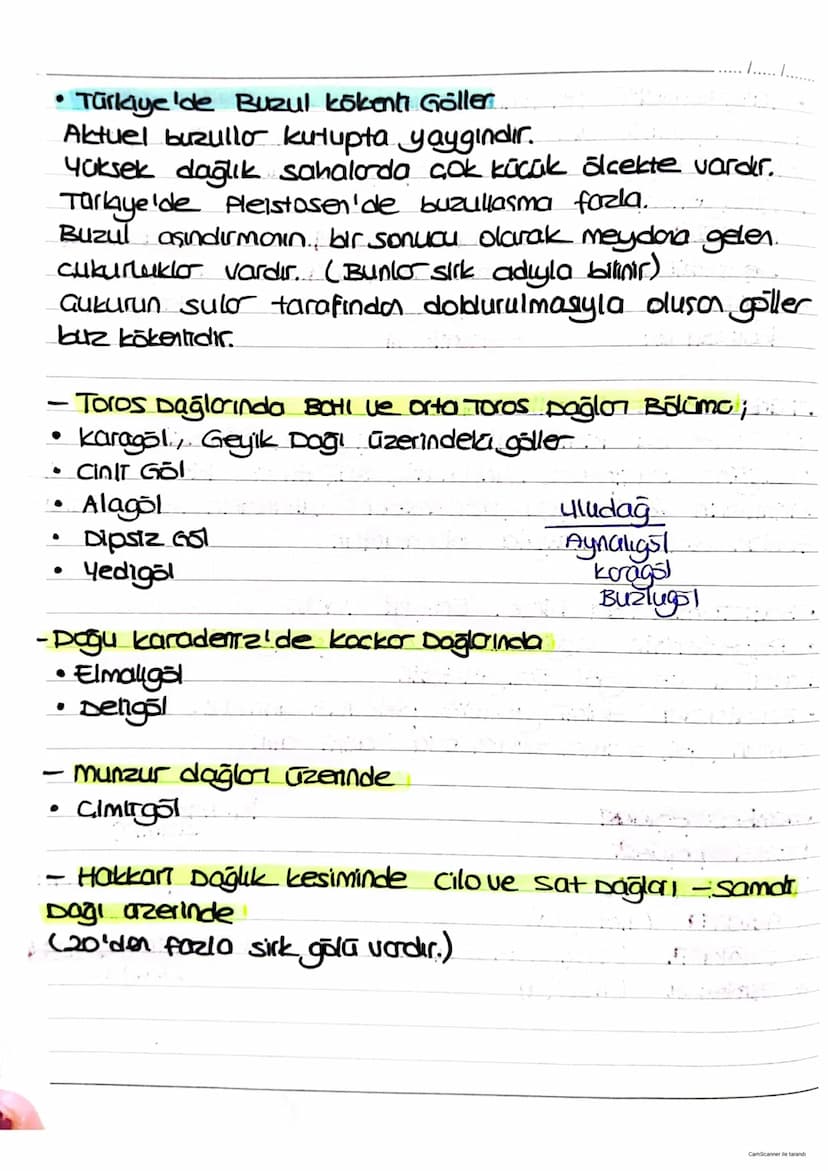 ..... /..... /......
• Türkiye'de Buzul kökenli Göller
Aktuel buzullar kutupta yaygındır.
Yüksek dağlık sahalarda çok küçük ölçekte vardır.
Türkiye'de Pleistosen'de buzullaşma fazla.
Buzul aşındırmanın, bir sonucu olarak meydana gelen
çukurluklar vardır. (Bunlar sirk adıyla bilinir)
Çukurun sular tarafından doldurulmasıyla oluşan göller
buz kökenlidir.
- Toros Dağlarında Batı ve Orta Toros Dağları Bölümü;
• Karagöl, Geyik Dağı üzerindeki göller
• Çinili Göl
• Alagöl
• Dipsiz Göl
• Yedigöl
Uludağ
Aynalıgöl
Karagöl
Buzlugöl
- Doğu Karadeniz'de Kaçkar Dağlarında
• Elmalıgöl
• Deligöl
- Munzur dağları üzerinde
• Çimligöl
- Hakkari Dağlık kesiminde Cilo ve Sat Dağları - Samdi
Dağı üzerinde
(20'den fazla sirk gölü vardır.)
CamScanner ile tarandı